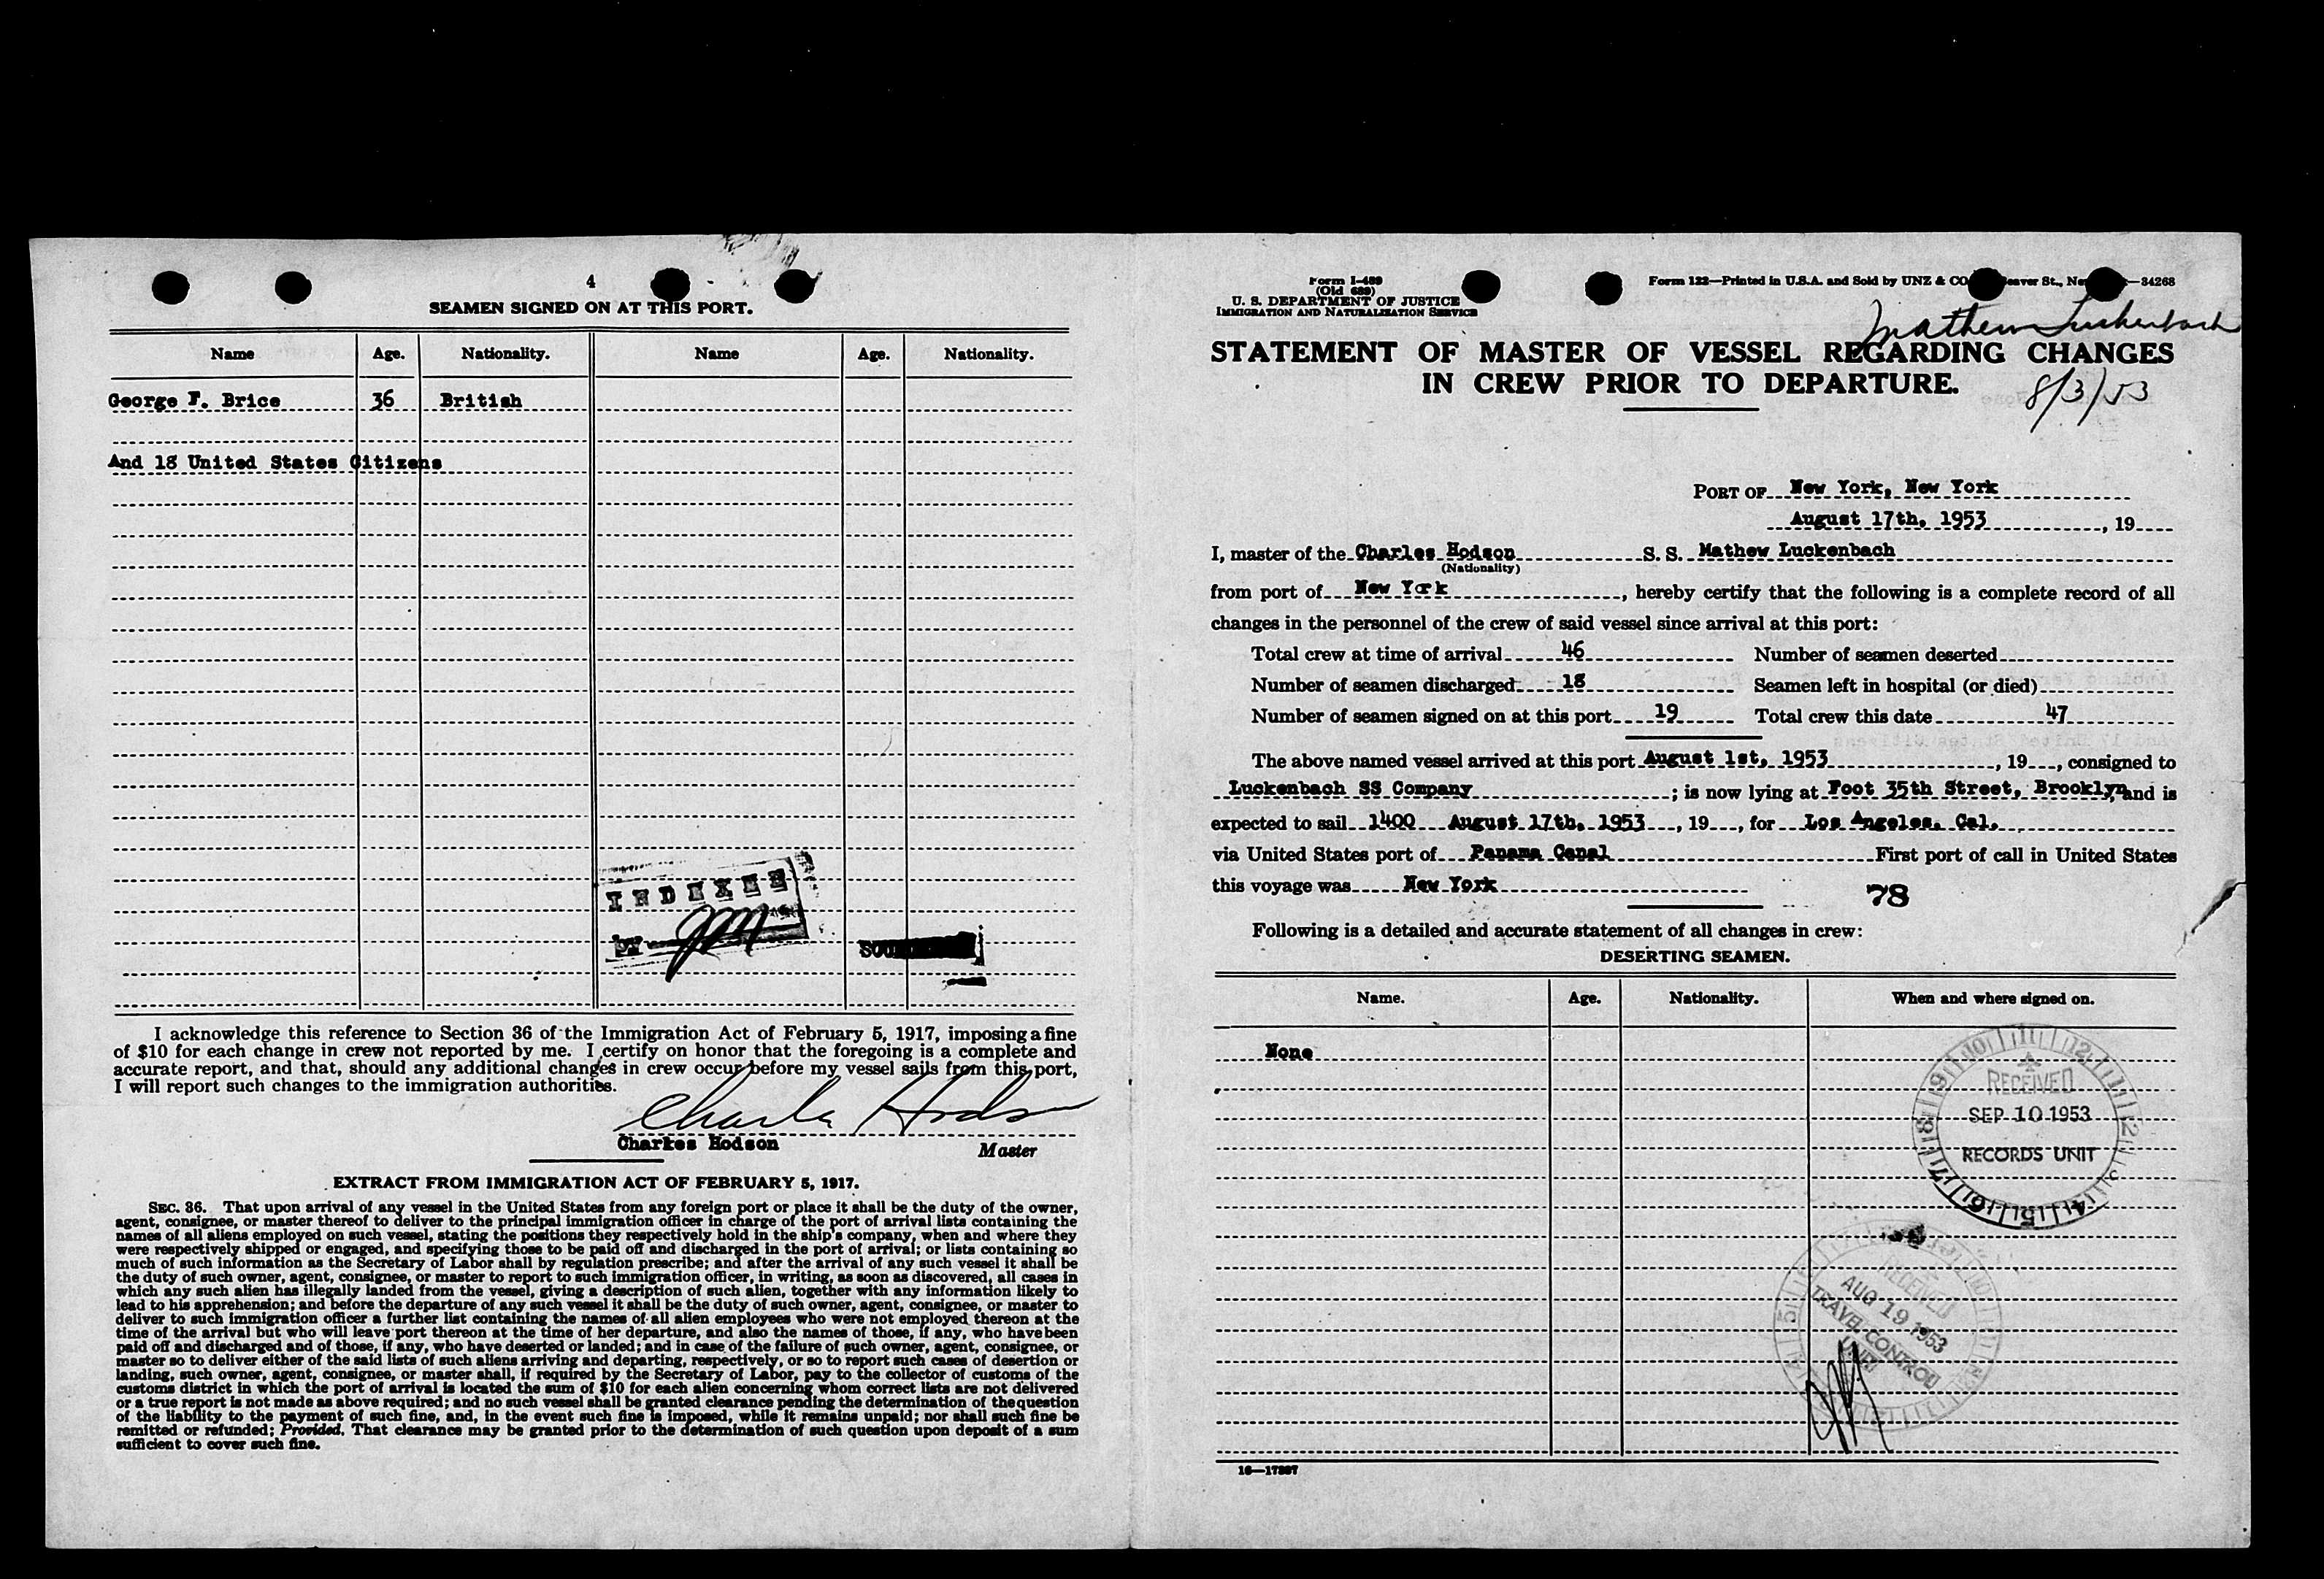 4
SEAMEN SIGNED ON AT THIS PORT.
Name Age. Nationality. Name Age. Nationality.
George F. Brice 36 British
And 18 United States Citizens
INDEXED
BY
I acknowledge this reference to Section 36 of the Immigration Act of February 5, 1917, imposing a fine
of $10 for each change in crew not reported by me. I certify on honor that the foregoing is a complete and
accurate report, and that, should any additional changes in crew occur before my vessel sails from this port,
I will report such changes to the immigration authorities.
Charles Hodson
Charkes Hodson Master
EXTRACT FROM IMMIGRATION ACT OF FEBRUARY 5, 1917.
SEC. 36. That upon arrival of any vessel in the United States from any foreign port or place it shall be the duty of the owner,
agent, consignee, or master thereof to deliver to the principal immigration officer in charge of the port of arrival lists containing the
names of all aliens employed on such vessel, stating the positions they respectively hold in the ship's company, when and where they
were respectively shipped or engaged, and specifying those to be paid off and discharged in the port of arrival; or lists containing so
much of such information as the Secretary of Labor shall by regulation prescribe; and after the arrival of any such vessel it shall be
the duty of such owner, agent, consignee, or master to report to such immigration officer, in writing, as soon as discovered, all cases in
which any such alien has illegally landed from the vessel, giving a description of such alien, together with any information likely to
lead to his apprehension; and before the departure of any such vessel it shall be the duty of such owner, agent, consignee, or master to
deliver to such immigration officer a further list containing the names of all alien employees who were not employed thereon at the
time of the arrival but who will leave port thereon at the time of her departure, and also the names of those, if any, who have been
paid off and discharged and of those, if any, who have deserted or landed; and in case of the failure of such owner, agent, consignee, or
master so to deliver either of the said lists of such aliens arriving and departing, respectively, or so to report such cases of desertion or
landing, such owner, agent, consignee, or master shall, if required by the Secretary of Labor, pay to the collector of customs of the
customs district in which the port of arrival is located the sum of $10 for each alien concerning whom correct lists are not delivered
or a true report is not made as above required; and no such vessel shall be granted clearance pending the determination of the question
of the liability to the payment of such fine, and, in the event such fine is imposed, while it remains unpaid; nor shall such fine be
remitted or refunded; Provided, That clearance may be granted prior to the determination of such question upon deposit of a sum
sufficient to cover such fine.
Form I-489
(Old 689)
U. S. DEPARTMENT OF JUSTICE
IMMIGRATION AND NATURALIZATION SERVICE
Form 122—Printed in U.S.A. and Sold by UNZ & CO eaver St., Ne —34268
Mathew Luckenbach
STATEMENT OF MASTER OF VESSEL REGARDING CHANGES
IN CREW PRIOR TO DEPARTURE.
8/3/53
PORT OF New York, New York
August 17th, 1953 , 19
I, master of the Charles Hodson S. S. Mathew Luckenbach
(Nationality)
from port of New York , hereby certify that the following is a complete record of all
changes in the personnel of the crew of said vessel since arrival at this port:
Total crew at time of arrival 46 Number of seamen deserted
Number of seamen discharged 18 Seamen left in hospital (or died)
Number of seamen signed on at this port 19 Total crew this date 47
The above named vessel arrived at this port August 1st, 1953 , 19 , consigned to
Luckenbach SS Company ; is now lying at Foot 35th Street, Brooklyn, and is
expected to sail 1400 August 17th, 1953 , 19 , for Los Angeles, Cal.
via United States port of Panama Canal First port of call in United States
this voyage was New York
78
Following is a detailed and accurate statement of all changes in crew:
DESERTING SEAMEN.
Name. Age. Nationality. When and where signed on.
None
RECEIVED
SEP 10 1953
RECORDS UNIT
RECEIVED
AUG 19 1953
TRAVEL CONTROL
UNIT
16—17397